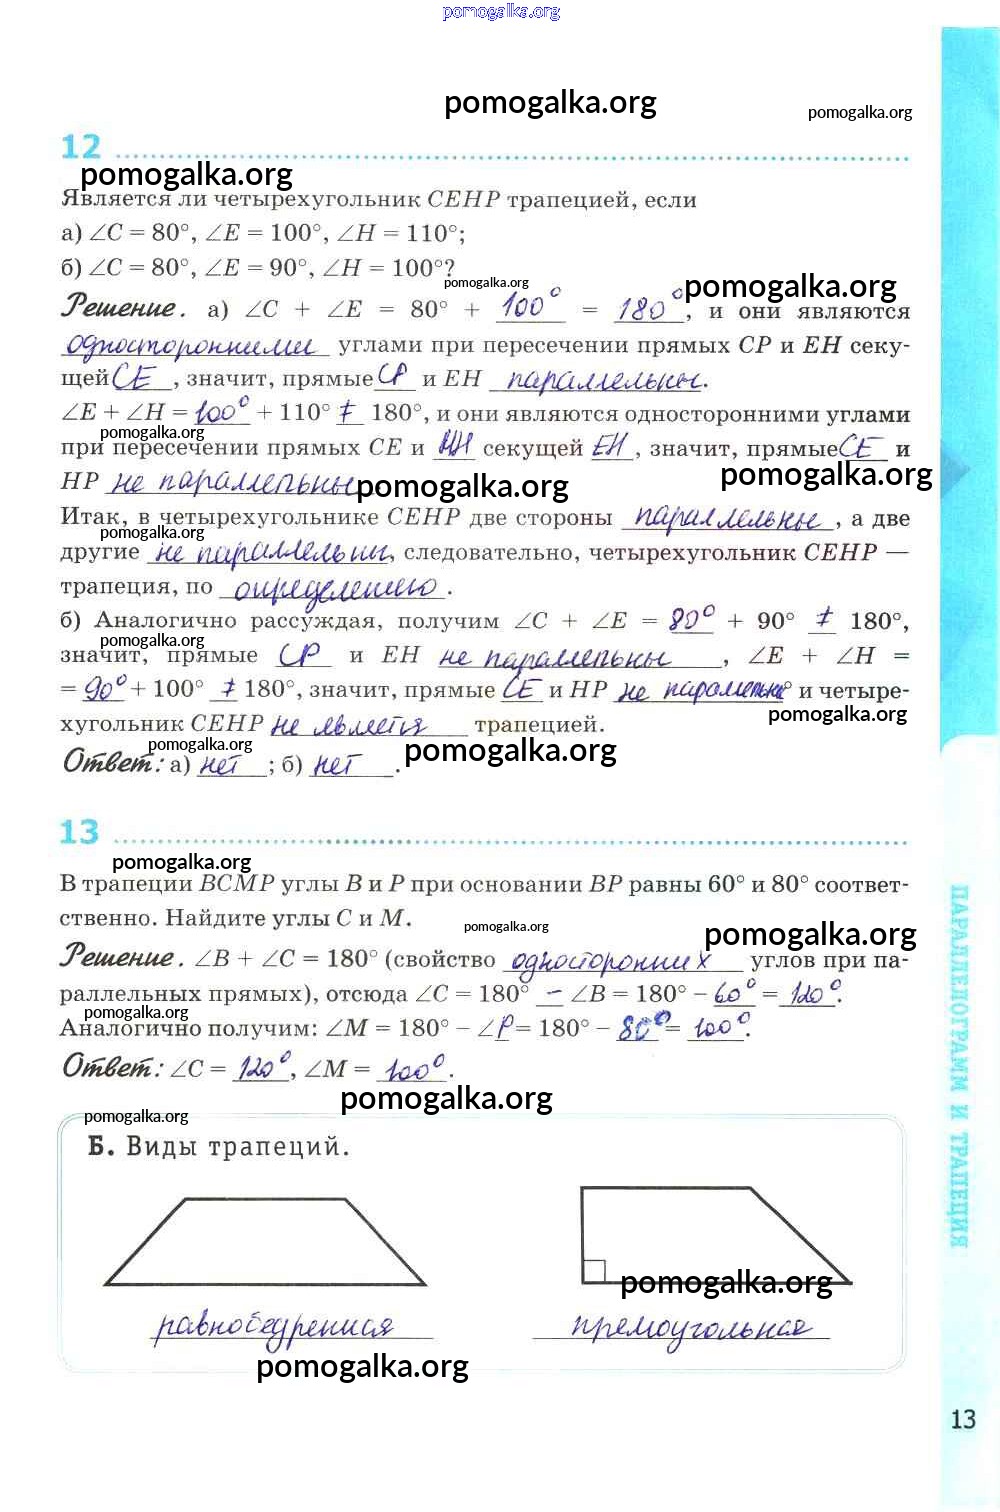 pomogalka.org
pomogalka.org
pomogalka.org
12
pomogalka.org
Является ли четырехугольник CEHP трапецией, если
а) ∠C = 80°, ∠E = 100°, ∠H = 110°;
б) ∠C = 80°, ∠E = 90°, ∠H = 100°?
pomogalka.org
pomogalka.org
Решение. а) ∠C + ∠E = 80° + 100° = 180°, и они являются
односторонними углами при пересечении прямых CP и EH секу-
щей CE, значит, прямые CP и EH параллельны.
∠E + ∠H = 100° + 110° ≠ 180°, и они являются односторонними углами
pomogalka.org
при пересечении прямых CE и HH секущей EH, значит, прямые CE и
HP не параллельны
pomogalka.org
pomogalka.org
Итак, в четырехугольнике CEHP две стороны параллельны, а две
pomogalka.org
другие не параллельны, следовательно, четырехугольник CEHP —
трапеция, по определению.
б) Аналогично рассуждая, получим ∠C + ∠E = 80° + 90° ≠ 180°,
pomogalka.org
значит, прямые CP и EH не параллельны, ∠E + ∠H =
= 90° + 100° ≠ 180°, значит, прямые CE и HP не параллельны и четыре-
pomogalka.org
хугольник CEHP не является трапецией.
pomogalka.org
pomogalka.org
Ответ: а) нет; б) нет.
13
pomogalka.org
В трапеции BCMP углы B и P при основании BP равны 60° и 80° соответ-
ственно. Найдите углы C и M.
pomogalka.org
pomogalka.org
Решение. ∠B + ∠C = 180° (свойство односторонних углов при па-
раллельных прямых), отсюда ∠C = 180° − ∠B = 180° − 60° = 120°.
pomogalka.org
Аналогично получим: ∠M = 180° − ∠P = 180° − 80° = 100°.
Ответ: ∠C = 120°, ∠M = 100°.
pomogalka.org
pomogalka.org
Б. Виды трапеций.
pomogalka.org
равнобедренная прямоугольная
pomogalka.org
ПАРАЛЛЕЛОГРАММ И ТРАПЕЦИЯ
13